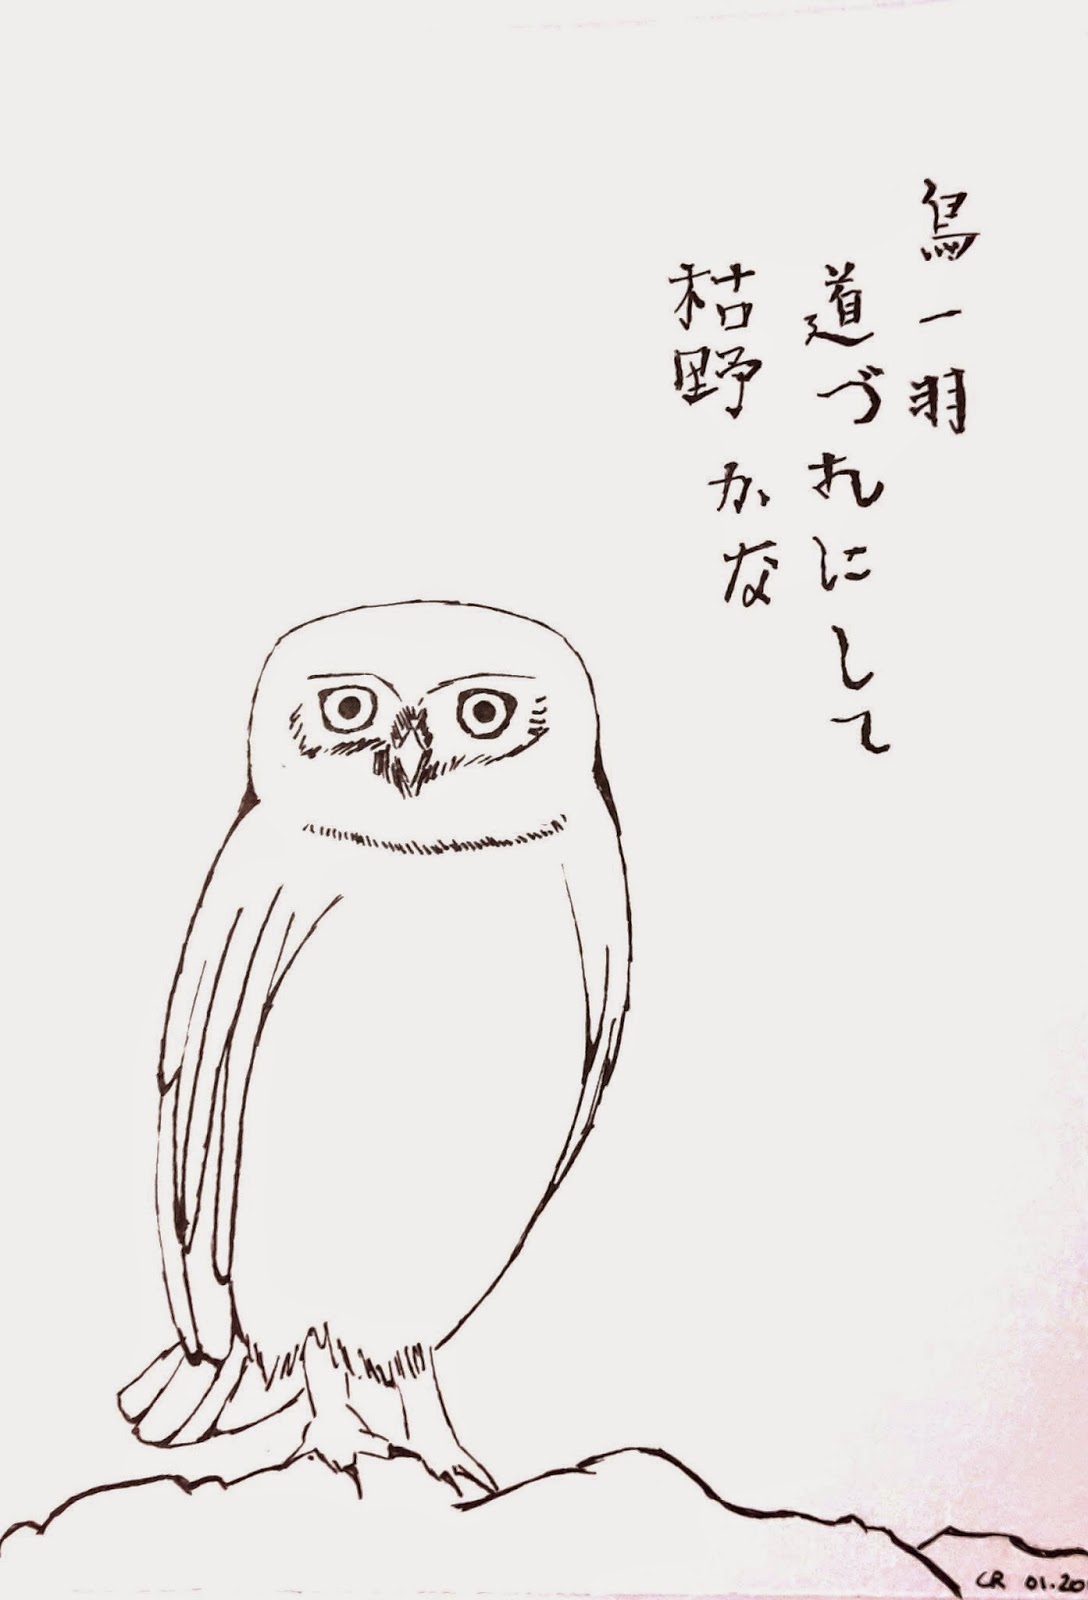 鳥一羽
道づれにして
枯野かな
CR 01.20